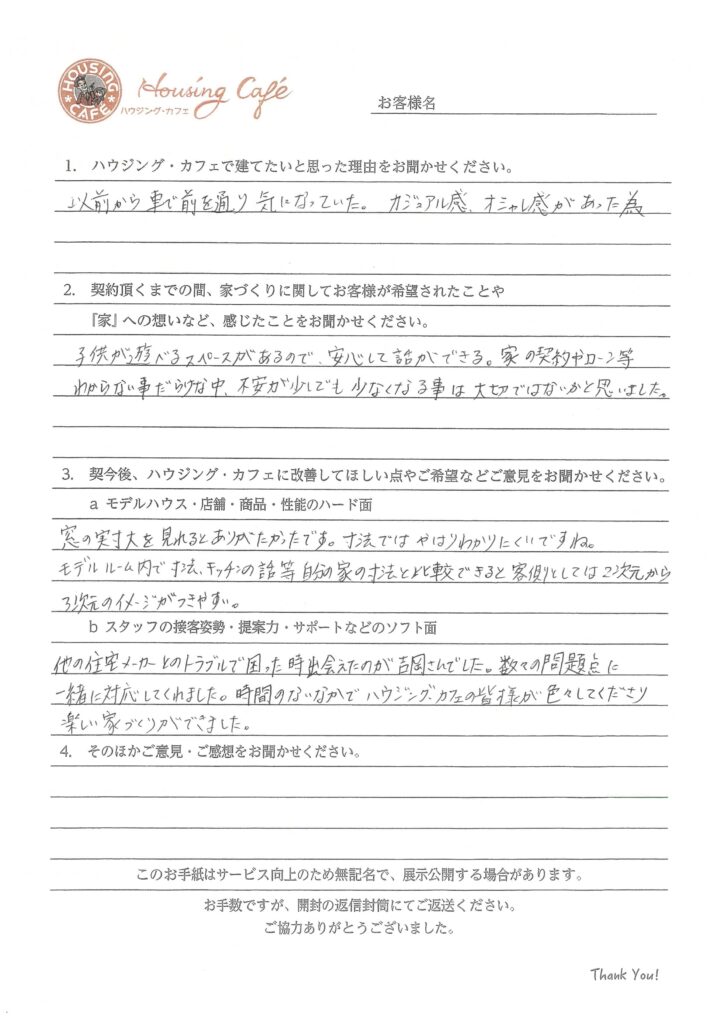 HOUSING CAFE
Housing Café
ハウジング・カフェ
お客様名
1. ハウジング・カフェで建てたいと思った理由をお聞かせください。
以前から車で前を通り気になっていた。 カジュアル感、オシャレ感があった為
2. 契約頂くまでの間、家づくりに関してお客様が希望されたことや
『家』への想いなど、感じたことをお聞かせください。
子供が遊べるスペースがあるので、安心して話ができる。家の契約やローン等
わからない事だらけな中、不安が少しでも少なくなる事は大切ではないかと思いました。
3. 契今後、ハウジング・カフェに改善してほしい点やご希望などご意見をお聞かせください。
a モデルハウス・店舗・商品・性能のハード面
窓の実寸大を見れるとありがたかったです。寸法ではやはりわかりにくいですね。
モデルルーム内で寸法、キッチンの話等自分の家の寸法と比較できると客側としては2次元から
3次元のイメージがつきやすい。
b スタッフの接客姿勢・提案力・サポートなどのソフト面
他の住宅メーカーとのトラブルで困った時出会えたのが吉岡さんでした。数々の問題点に
一緒に対応してくれました。時間のないなかでハウジング・カフェの皆様が色々してくださり
楽しい家づくりができました。
4. そのほかご意見・ご感想をお聞かせください。
このお手紙はサービス向上のため無記名で、展示公開する場合があります。
お手数ですが、開封の返信封筒にてご返送ください。
ご協力ありがとうございました。
Thank You!